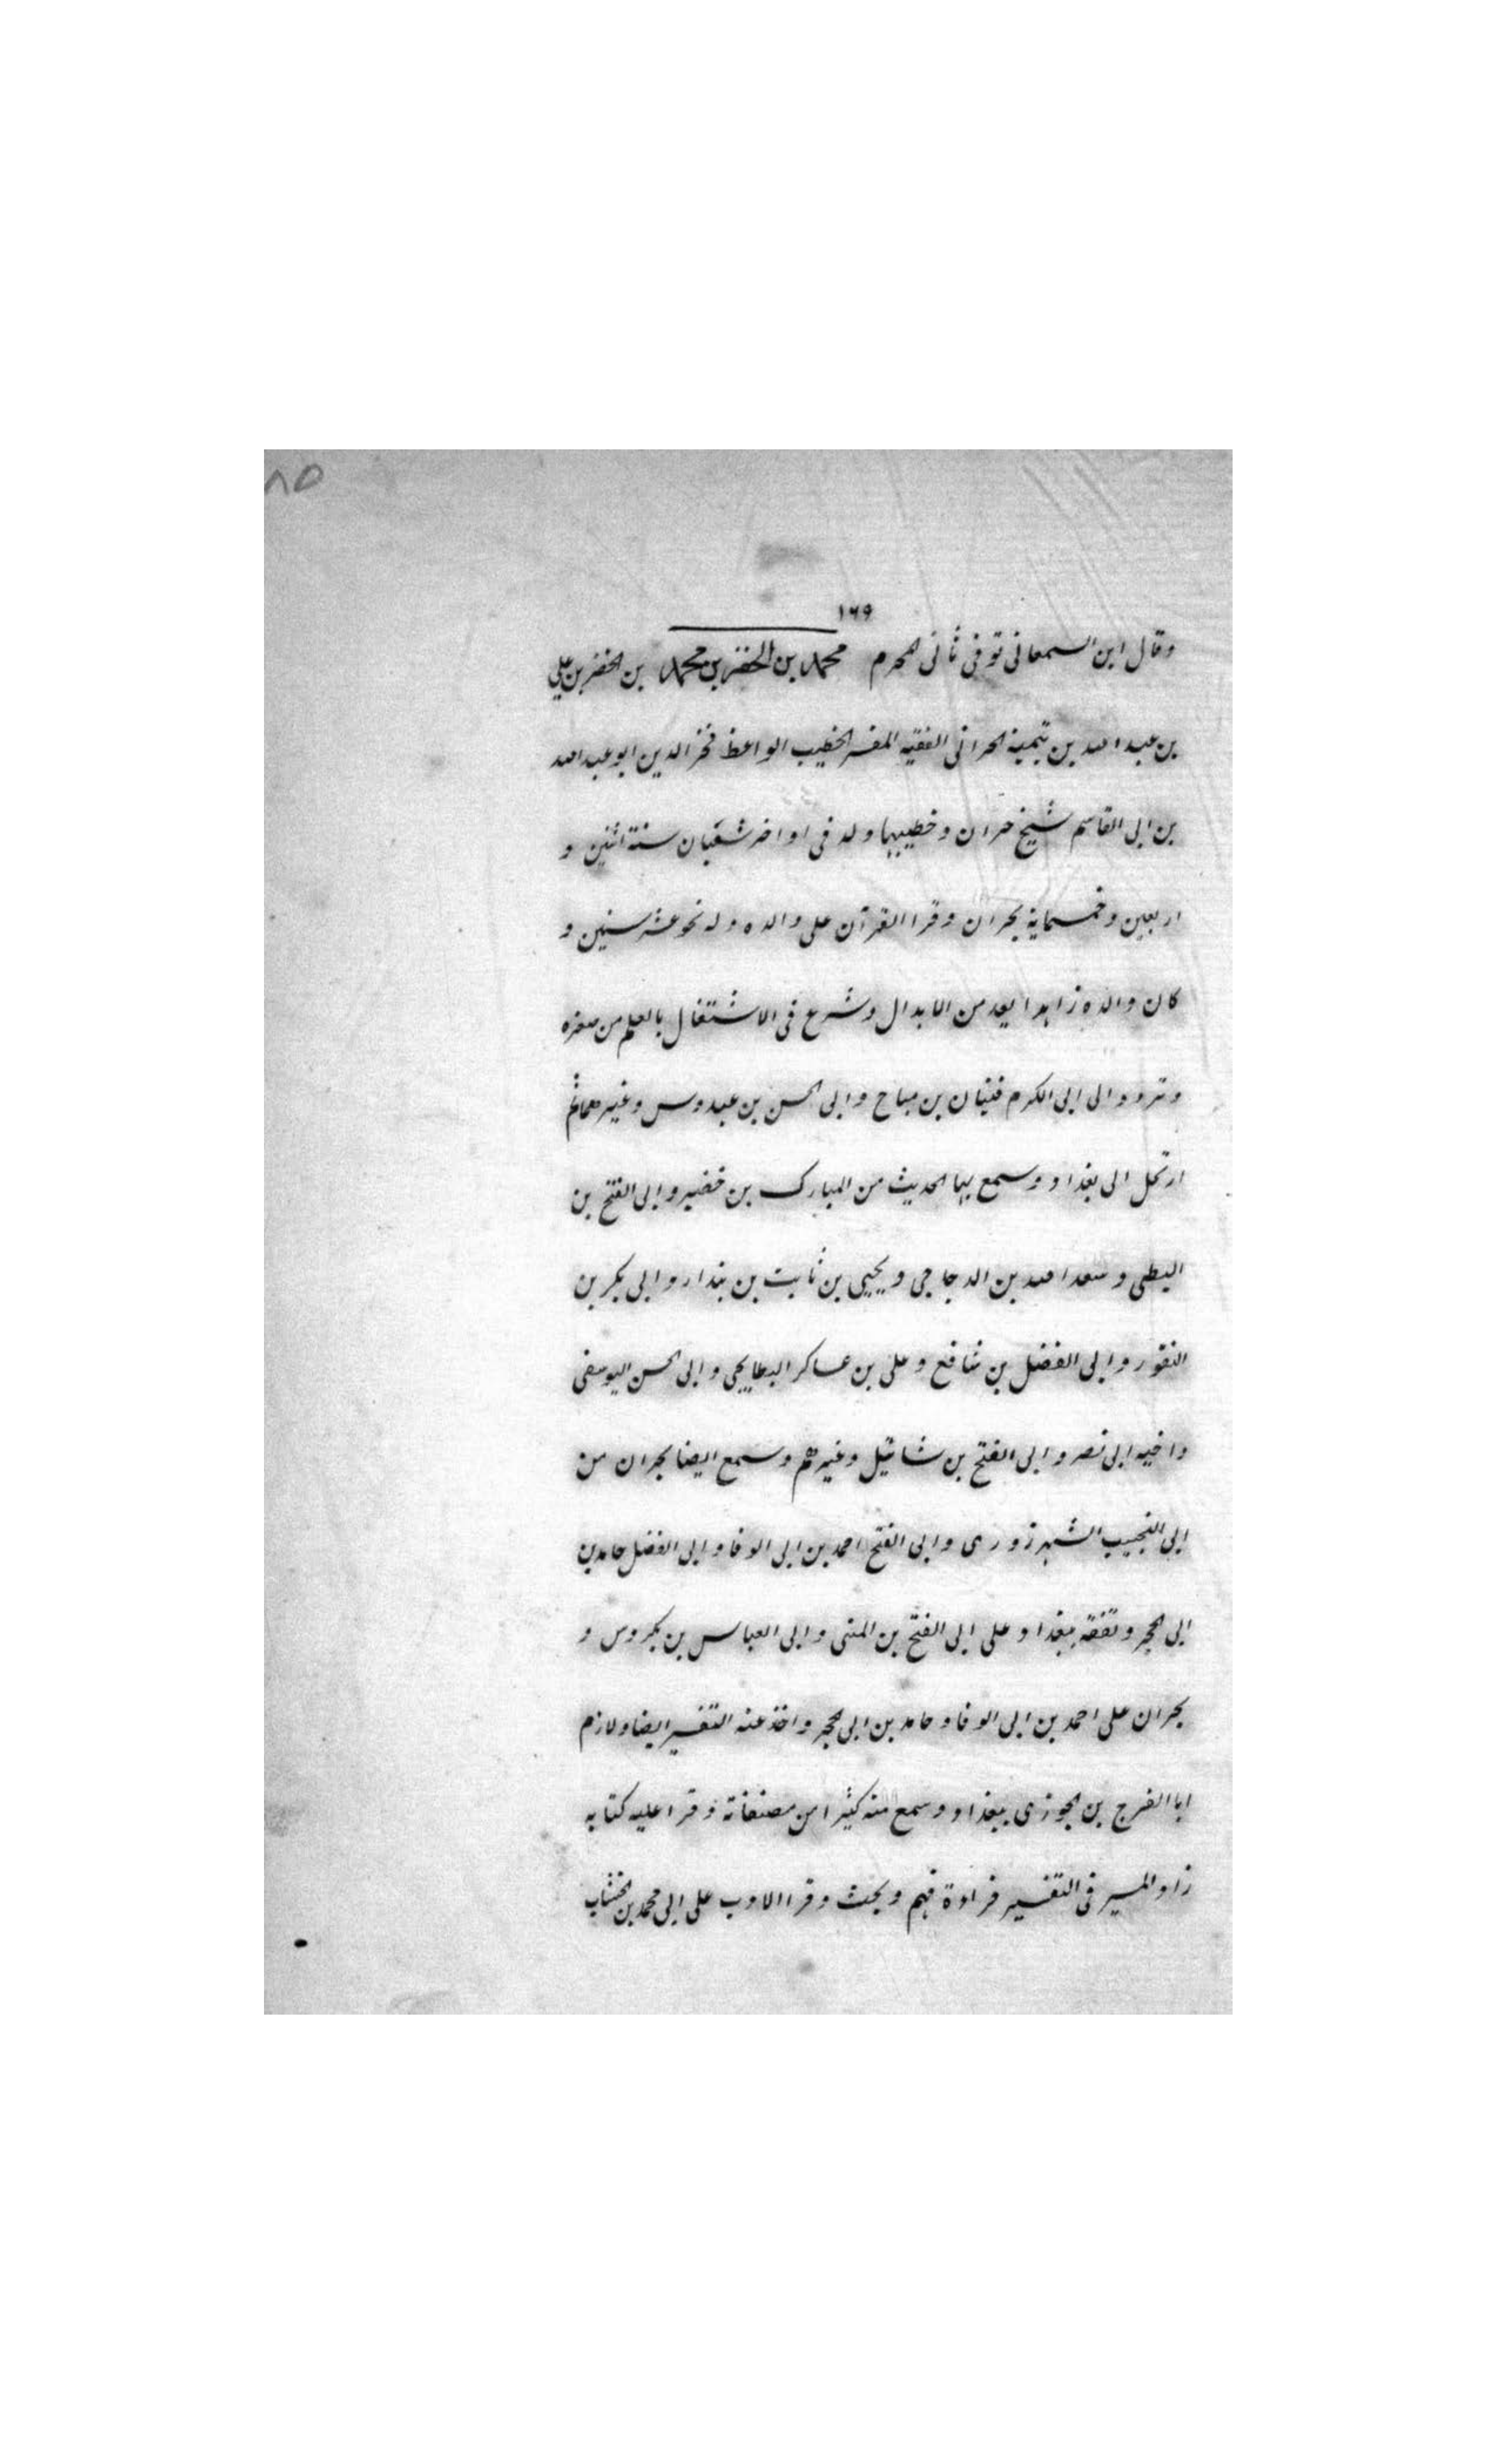 ٨٥
١٦٩
وقال ابن السمعانى توفى ثانى المحرم محمد بن الخضر بن محمد بن الخضر بن على
بن عبد الله بن تيمية الحرانى الفقيه المفسر الخطيب الواعظ فخر الدين ابو عبد الله
بن ابى القاسم شيخ حران وخطيبها ولد فى اواخر شعبان سنة اثنين و
اربعين وخمسماية بحران وقرا القرآن على والده وله نحو عشر سنين و
كان والده زاهدا يعد من الابدال وشرع فى الاشتغال بالعلم من صغره
وتردد الى ابى الكرم فتيان بن مياح وابى الحسن بن عبدوس وغيرهما ثم
ارتحل الى بغداد وسمع بها الحديث من المبارك بن خضير وابى الفتح بن
البطى وسعد الله بن الدجاجى ويحيى بن ثابت بن بندار وابى بكر بن
النقور وابى الفضل بن شافع وعلى بن عساكر البطايحى وابى الحسن اليوسفى
واخيه ابى نصر وابى الفتح بن شاتيل وغيرهم وسمع ايضا بحران من
ابى النجيب الشهرزورى وابى الفتح احمد بن ابى الوفا وابى الفضل حامد بن
ابى الحجر وتفقه ببغداد على ابى الفتح بن المنى وابى العباس بن بكروس و
بحران على احمد بن ابى الوفا وحامد بن ابى الحجر واخذ عنه التفسير ايضا ولازم
ابا الفرج بن الجوزى ببغداد وسمع منه كثيرا من مصنفاته وقرا عليه كتابه
زاد المسير فى التفسير قراءة فهم وبحث وقرا الادب على ابى محمد بن الخشاب